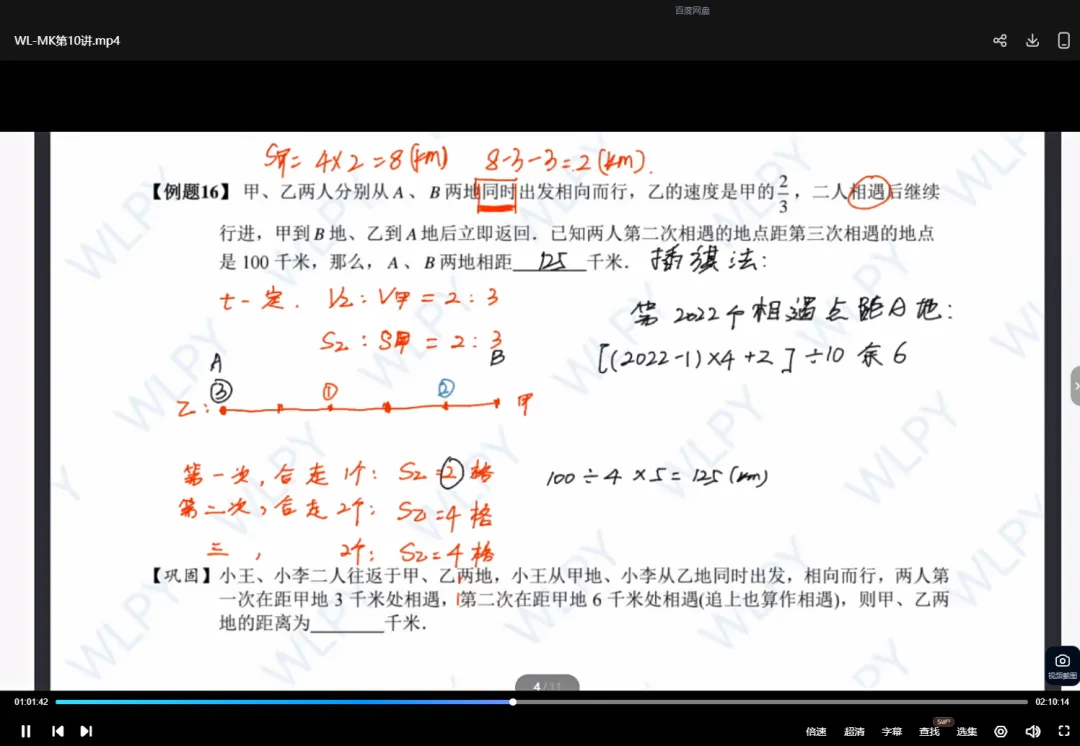 百度网盘
WL-MK第10讲.mp4
S甲= 4×2=8(km) 8-3-3=2(km).
【例题16】 甲、乙两人分别从 A 、 B 两地同时出发相向而行，乙的速度是甲的 2/3 ，二人相遇后继续
行进，甲到 B 地、乙到 A 地后立即返回．已知两人第二次相遇的地点距第三次相遇的地点
是 100 千米，那么， A 、 B 两地相距 125 千米． 插旗法:
t一定. V乙:V甲=2:3
第2022个相遇点距A地:
S乙:S甲=2:3
[(2022-1)×4+2]÷10 余6
A B
③ ① ②
乙: 甲
第一次, 合走1个: S乙=2格
100÷4×5=125(km)
第二次, 合走2个: S乙=4格
三, 2个: S乙=4格
【巩固】小王、小李二人往返于甲、乙两地，小王从甲地、小李从乙地同时出发，相向而行，两人第
一次在距甲地 3 千米处相遇，第二次在距甲地 6 千米处相遇(追上也算作相遇)，则甲、乙两
地的距离为________千米．
WLPY
4/11
视频截图
01:01:42 02:10:14
倍速 超清 字幕 查找 SVIP 选集